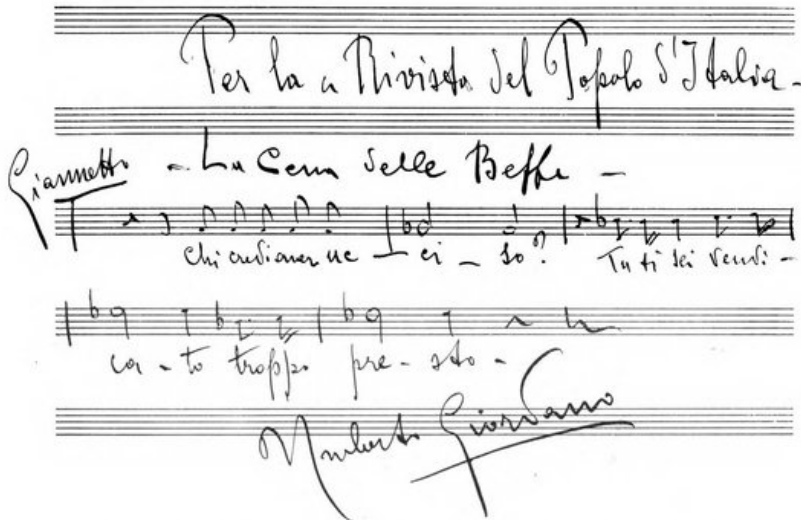 Per la "Rivista del Popolo d'Italia -
Giannetto - La Cena delle Beffe -
chi crediam uc - ci - so? Tu ti sei vendi -
ca - to troppo pre - sto -
Umberto Giordano